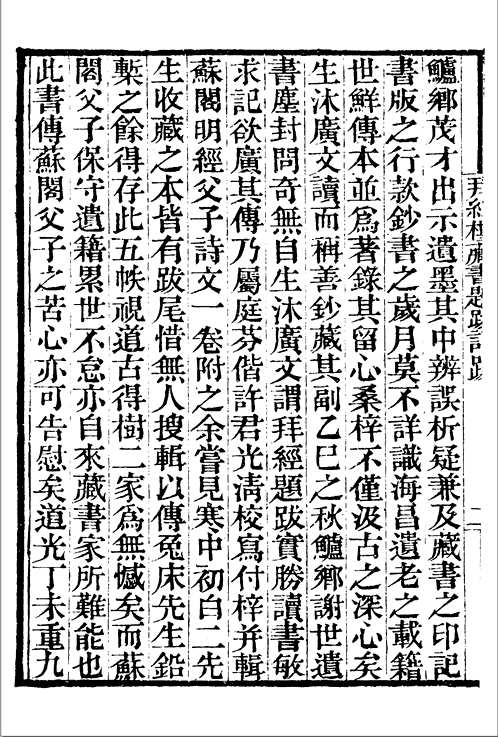 拜經樓藏書題跋記跋
二
鱸鄉茂才出示遺墨其中辨誤析疑兼及藏書之印記
書版之行款鈔書之歲月莫不詳識海昌遺老之載籍
世鮮傳本並爲著錄其留心桑梓不僅汲古之深心矣
生沐廣文讀而稱善鈔藏其副乙巳之秋鱸鄉謝世遺
書塵封問奇無自生沐廣文謂拜經題跋實勝讀書敏
求記欲廣其傳乃屬庭芬偕許君光淸校寫付梓并輯
蘇閣明經父子詩文一卷附之余嘗見寒中初白二先
生收藏之本皆有跋尾惜無人搜輯以傳兔床先生鉛
槧之餘得存此五帙視道古得樹二家爲無憾矣而蘇
閣父子保守遺籍累世不怠亦自來藏書家所難能也
此書傳蘇閣父子之苦心亦可告慰矣道光丁未重九